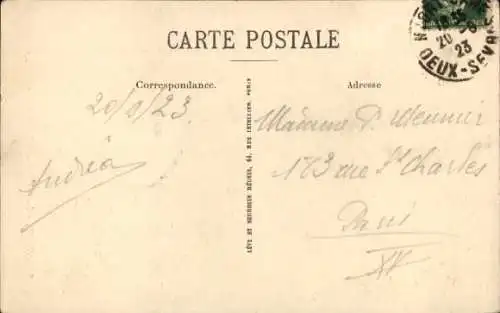 CARTE POSTALE
Correspondance.
Adresse
20/8/23
Andréa
Madame P. Meunier
173 rue St Charles
Paris
XV
LÉVY ET NEURDEIN RÉUNIS, 44, RUE LETELLIER, PARIS
20 -8
23
DEUX-SEVRES